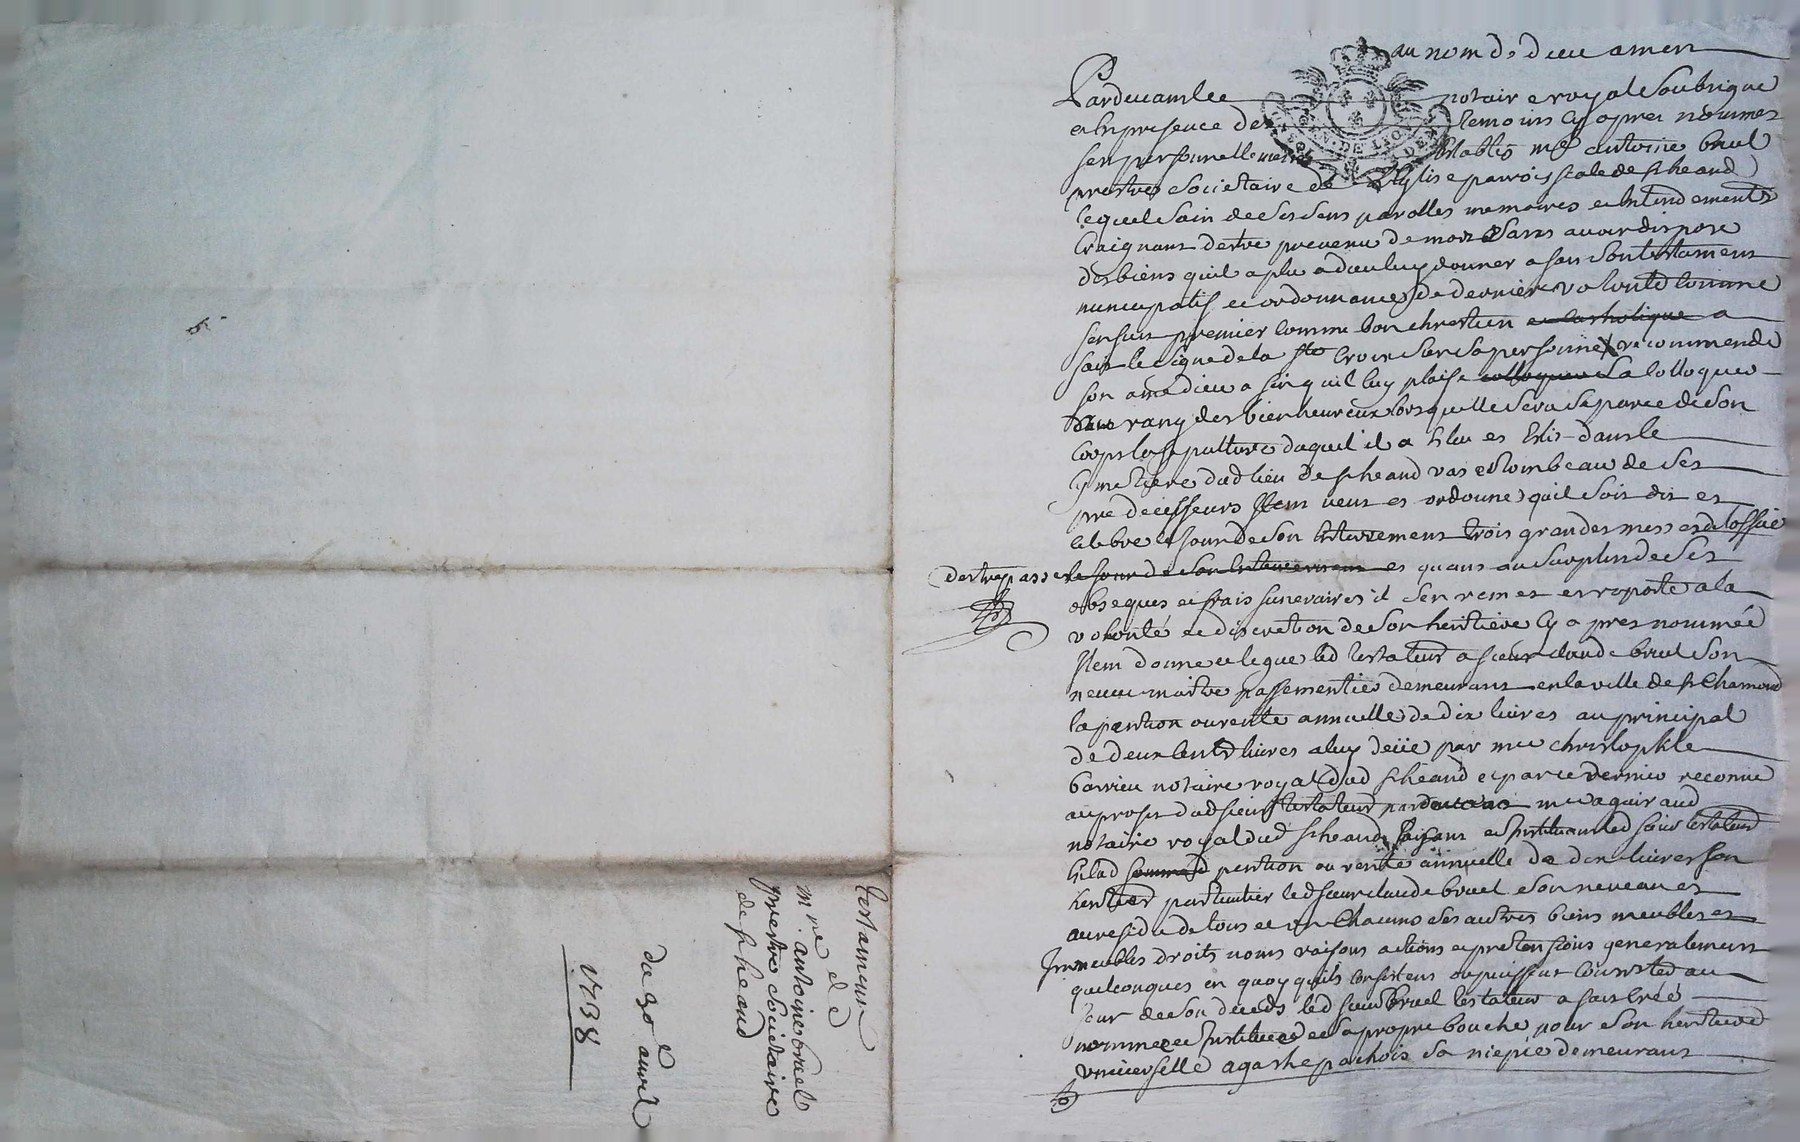 au nom de dieu amen
Pardevant le notaire royal soubsigne
et en presence des temoins cy apres nommes
sest personnellement establis mre antoine bruel
prestre societaire de leglise parroissiale de st heand
lequel sain de ses sens parolles memoires et entendements
craignant destre prevenu de mort sans avoir dispose
des biens quil a plu a dieu luy donner a fait son testament
nuncupatif et ordonnance de derniere volonte comme
sensuit premier comme bon chrestien et catholique a
fait le signe de la ste croix sur sa personne recommende
son ame a dieu a fin quil luy plaise colloquer la colloquer
au rang des bienheureux lors quelle sera separee de son
corps la sepulture duquel il a elu et elit dans le
cymetiere dud lieu de st heand vas et tombeau de ses
predecesseurs Item veut et ordonne quil soit dit et
celebre le jour de son enterrement trois grandes messes de loffice
des trepasses le jour de son enterrement et quant au surplus de ses
obseques et frais funeraires il sen remet et raporte a la
volonté et discretion de son heritiere cy apres nommée
Item donne et legue led testateur a sieur claude bruel son
neveu maitre passementier demeurant en la ville de st Chamond
la pention ou rente annuelle de dix livres au principal
de deux cents livres a luy deüe par me christophle
barrieu notaire royal dud st heand et par ce dernier reconnue
au profit dud sieur testateur pardevant me aguiraud
notaire royal dud st heand faisant et instituant led sieur testateur
en lad somme pention ou rente annuelle de dix livres son
heritier particulier led sieur claude bruel son neveu et
au residu de tous et un chacuns ses autres biens meubles et
Immeubles droits noms raisons actions et pretensions generalement
quelconques en quoy quils consistent ou puissent consister au
jour de son deceds led sieur Bruel testateur a fait créé
nommee et instituee de sa propre bouche pour son heritiere
universelle agathe pachois sa niepce demeurant
testament
de
mre antoine bruel
prestre societaire
de st heand
du 30e avril
1738